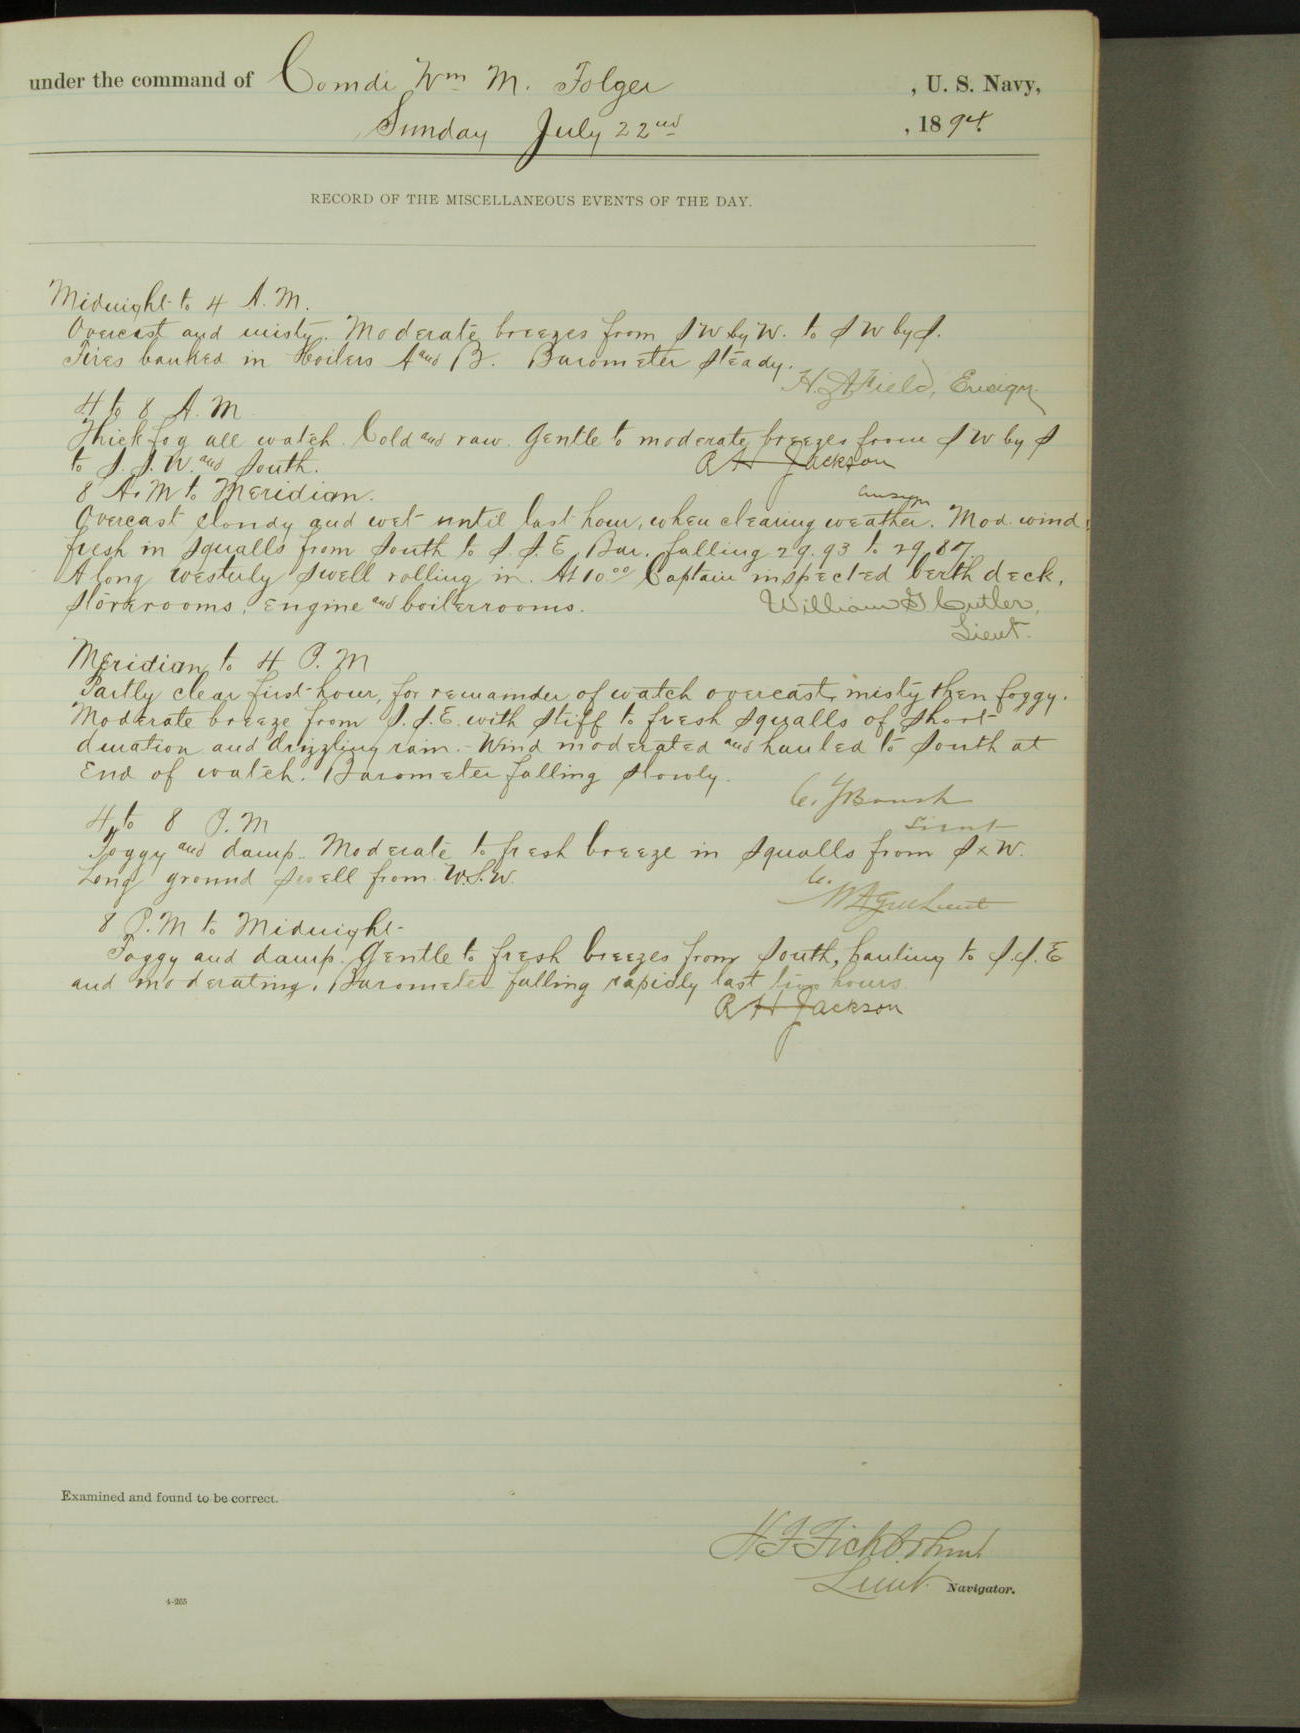 under the command of Comdr Wm M. Folger, U. S. Navy,
Sunday July 22nd, 1894.
RECORD OF THE MISCELLANEOUS EVENTS OF THE DAY.
Midnight to 4 A.M.
Overcast and misty. Moderate breezes from SW by W. to SW by S.
Fires banked in Boilers A and B. Barometer steady.
H. A. Field, Ensign.
4 to 8 A.M
Thick fog all watch. Cold and raw. Gentle to moderate breezes from SW by S
to S.S.W. and South.
R H Jackson
Ensign
8 A.M to Meridian.
Overcast cloudy and wet until last hour, when clearing weather. Mod. wind
fresh in squalls from South to S.S.E. Bar. falling 29.93 to 29.87.
A long westerly swell rolling in. At 10 00 Captain inspected berth deck,
storerooms, engine and boilerrooms.
William G Cutler,
Lieut.
Meridian to 4 P.M
Partly clear first hour, for remainder of watch overcast, misty then foggy.
Moderate breeze from S.S.E. with stiff to fresh squalls of short
duration and drizzling rain. Wind moderated and hauled to South at
end of watch. Barometer falling slowly.
C. J Boush
Lieut
4 to 8 P.M
Foggy and damp. Moderate to fresh breeze in squalls from SxW.
Long ground swell from W.S.W.
Lieut
8 P.M to Midnight
Foggy and damp. Gentle to fresh breezes from South, hauling to S.S.E
and moderating. Barometer falling rapidly last two hours
R H Jackson
Examined and found to be correct.
H F Fickbohm
Lieut. Navigator.
4-265